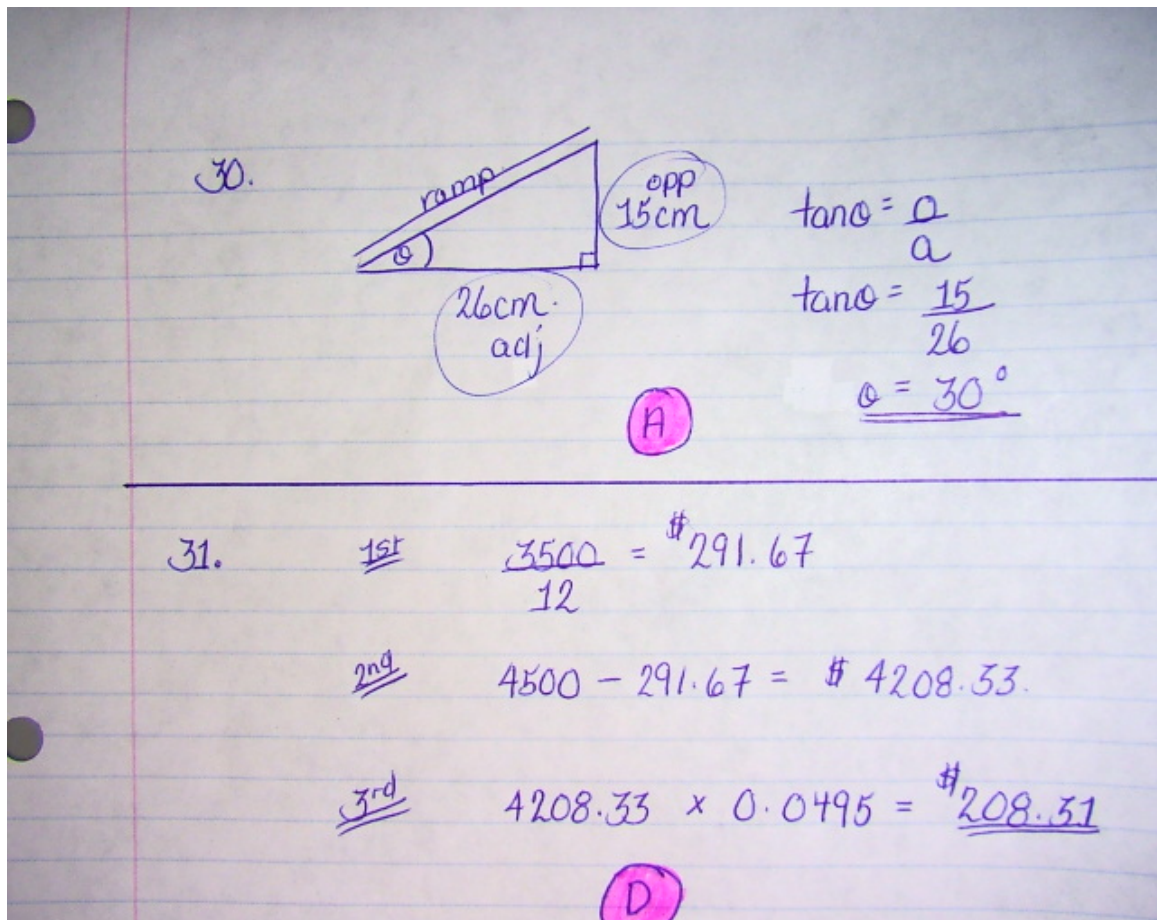 30.
ramp
θ
opp
15cm
26cm.
adj
tanθ = o
a
tanθ = 15
26
θ = 30°
A
31.
1st
3500 = $291.67
12
2nd
4500 - 291.67 = $ 4208.33.
3rd
4208.33 x 0.0495 = $208.31
D